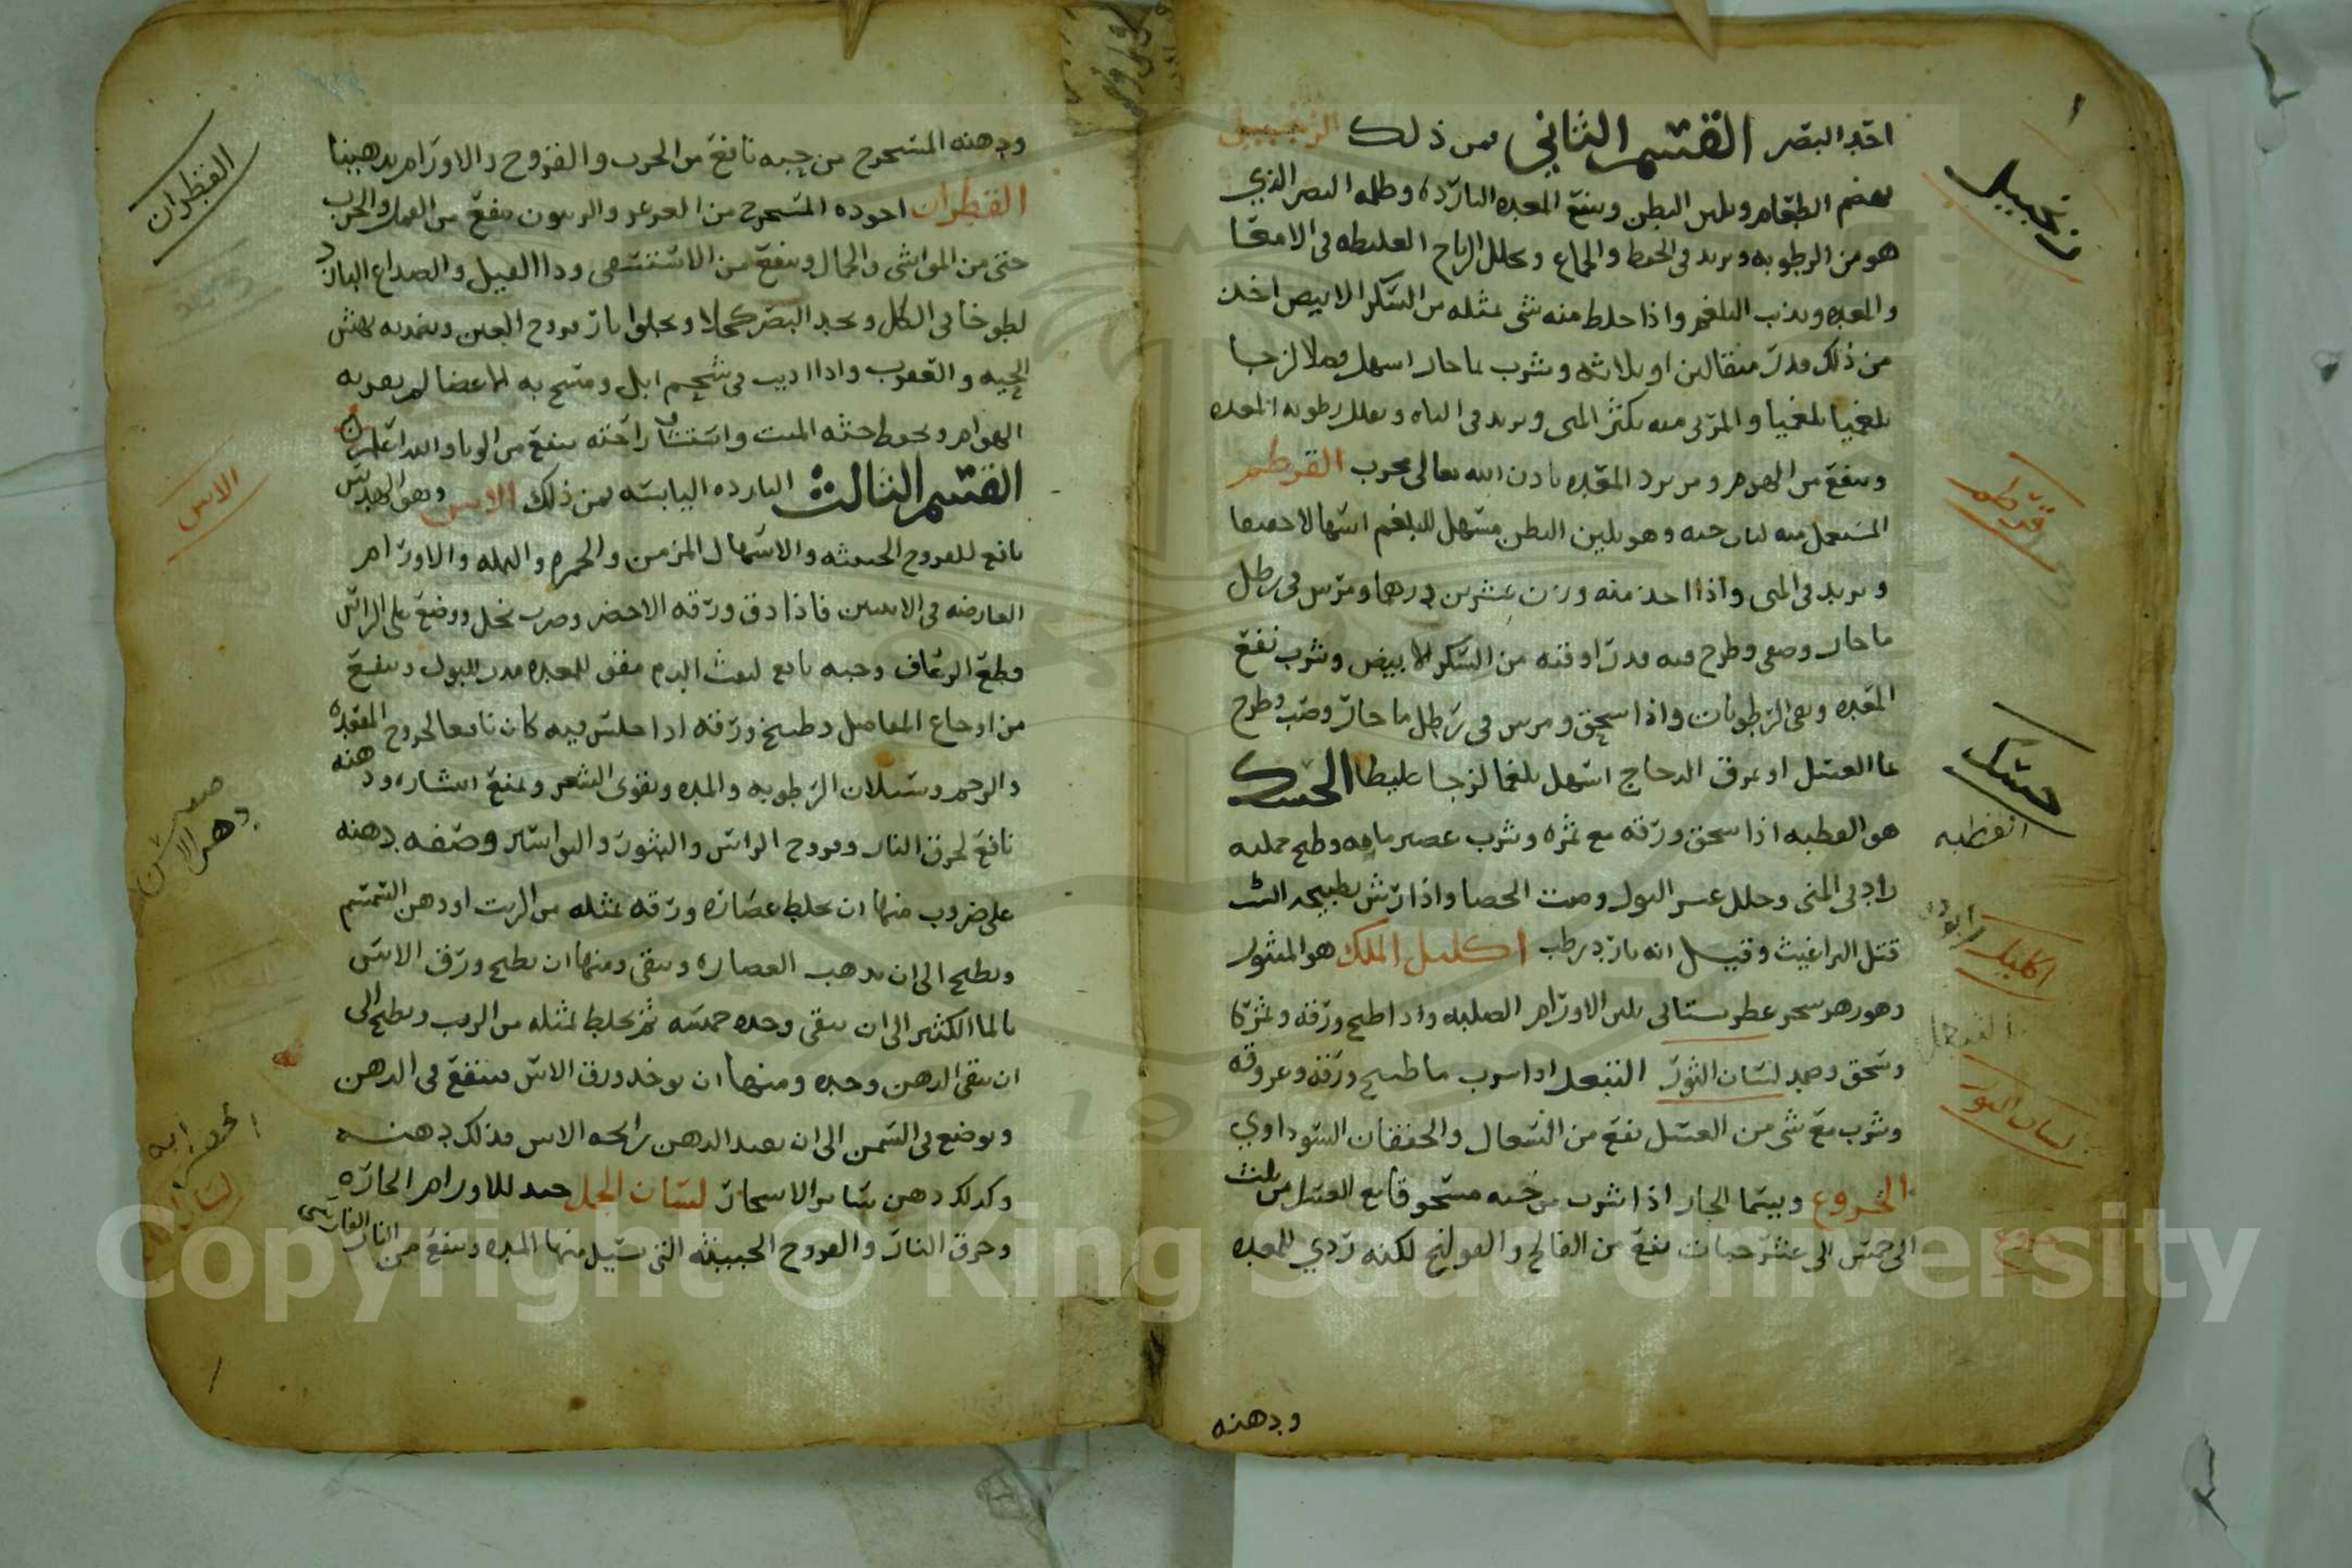 احد البصر القسم الثاني فمن ذلك الزنجبيل
يهضم الطعام ويلين البطن وينفع المعده البارده وظلمه البصر الذي
هو من الرطوبه ويزيد في الحفظ والجماع ويحلل الرياح الغليظه في الامعا
والمعده ويذيب البلغم واذا خلط منه شي بمثله من السكر الابيض اخذ
من ذلك قدر مثقالين او ثلاثه وشرب بما حار اسهل فضلا لزجا
بلغميا بلغميا والمربى منه يكثر المني ويزيد في الباه ويقلل رطوبه المعده
وينفع من الهرم ومن برد المعده باذن الله تعالى مجرب القرطم
المستعمل منه لباب حبه وهو يلين البطن مسهل للبلغم اسهالا
ويزيد في المني واذا اخذ منه وزن عشرين درهما ومرس في رطل
ما حار وصفي وطرح فيه قدر اوقيه من السكر الابيض وشرب نفع
المعده ونقى الرطوبات واذا سحق ومرس في رطل ما حار وصب وطرح
عا العسل او مرق الدجاج اسهل بلغما لزجا غليظا الحسك
هو القطبه اذا سحق ورقه مع ثمره وشرب عصير مايه وطبخ
زاد في المني وحلل عسر البول وفتت الحصا واذا رش بطبيخه البيت
قتل البراغيث وقيل انه بارد رطب اكليل الملك هو المنثور
وهو زهر شجر عطر بستاني يلين الاورام الصلبه واذا طبخ ورقه وثمره كا
وسحق وضمد لسان الثور النبعل اذا شرب ما طبيخ ورقه وعروقه
وشرب مع شي من العسل نفع من السعال والخفقان السوداوي
الخروع ويسما الجار اذا شرب من حبه مسحوقا مع العسل من ثلث
الى خمس الى عشر حبات نفع من الفالج والقولنج لكنه ردي للمعده
ودهنه
زنجبيل
قرطم
حسك
القطبه
اكليل
لسان الثور
خروع
ودهنه المستخرج من حبه نافع من الجرب والقروح والاورام تدهينا
القطران اجوده المستخرج من العرعر والزيتون ينفع من القمل والجرب
حتى من المواشي والجمال وينفع من الاستسقى ودا الفيل والصداع البارد
لطوخا في الكل ويحد البصر كحلا ويجلوا اثار قروح العين وضمدبه لنهش
الحيه والعقرب واذا اذيب في شحم ايل ومسح به الاعضا لم يقربه
الهوام ويحفظ جثه الميت واستنشاق رائحته ينفع من الوبا والله اعلم
القسم الثالث البارده اليابسه فمن ذلك الاس وهو الهدس
نافع للقروح الخبيثه والاسهال المزمن والحمره والنمله والاورام
العارضه في الانثيين فاذا دق ورقه الاخضر وضرب بخل ووضع على الراس
قطع الرعاف وحبه نافع لنفث الدم مقو للمعده مدر للبول وينفع
من اوجاع المفاصل وطبيخ ورقه اذا جلس فيه كان نافعا لخروج المقعده
والرحم وسيلان الرطوبه والمده ويقوي الشعر ويمنع انتشاره ودهنه
نافع لحرق النار وقروح الراس والبثور والبواسير وصفه دهنه
على ضروب منها ان يخلط عصاره ورقه بمثله من الزيت او دهن السمسم
ويطبخ الى ان يذهب العصاره ويبقى ومنها ان يطبخ ورق الاس
بالما الكثير الى ان يبقى وحده خمسه ثم يخلط بمثله من الزيت ويطبخ الى
ان يبقى الدهن وحده ومنها ان يوخذ ورق الاس فينقع في الدهن
ويوضع في الشمس الى ان يفيد الدهن رايحه الاس فذلك دهنه
وكذلك دهن سائر الاشجار لسان الحمل جيد للاورام الحاره
وحرق النار والقروح الخبيثه التي تسيل منها المده وينفع من النار الفارسي
القطران
الاس
صفه
دهن الاس
لسان